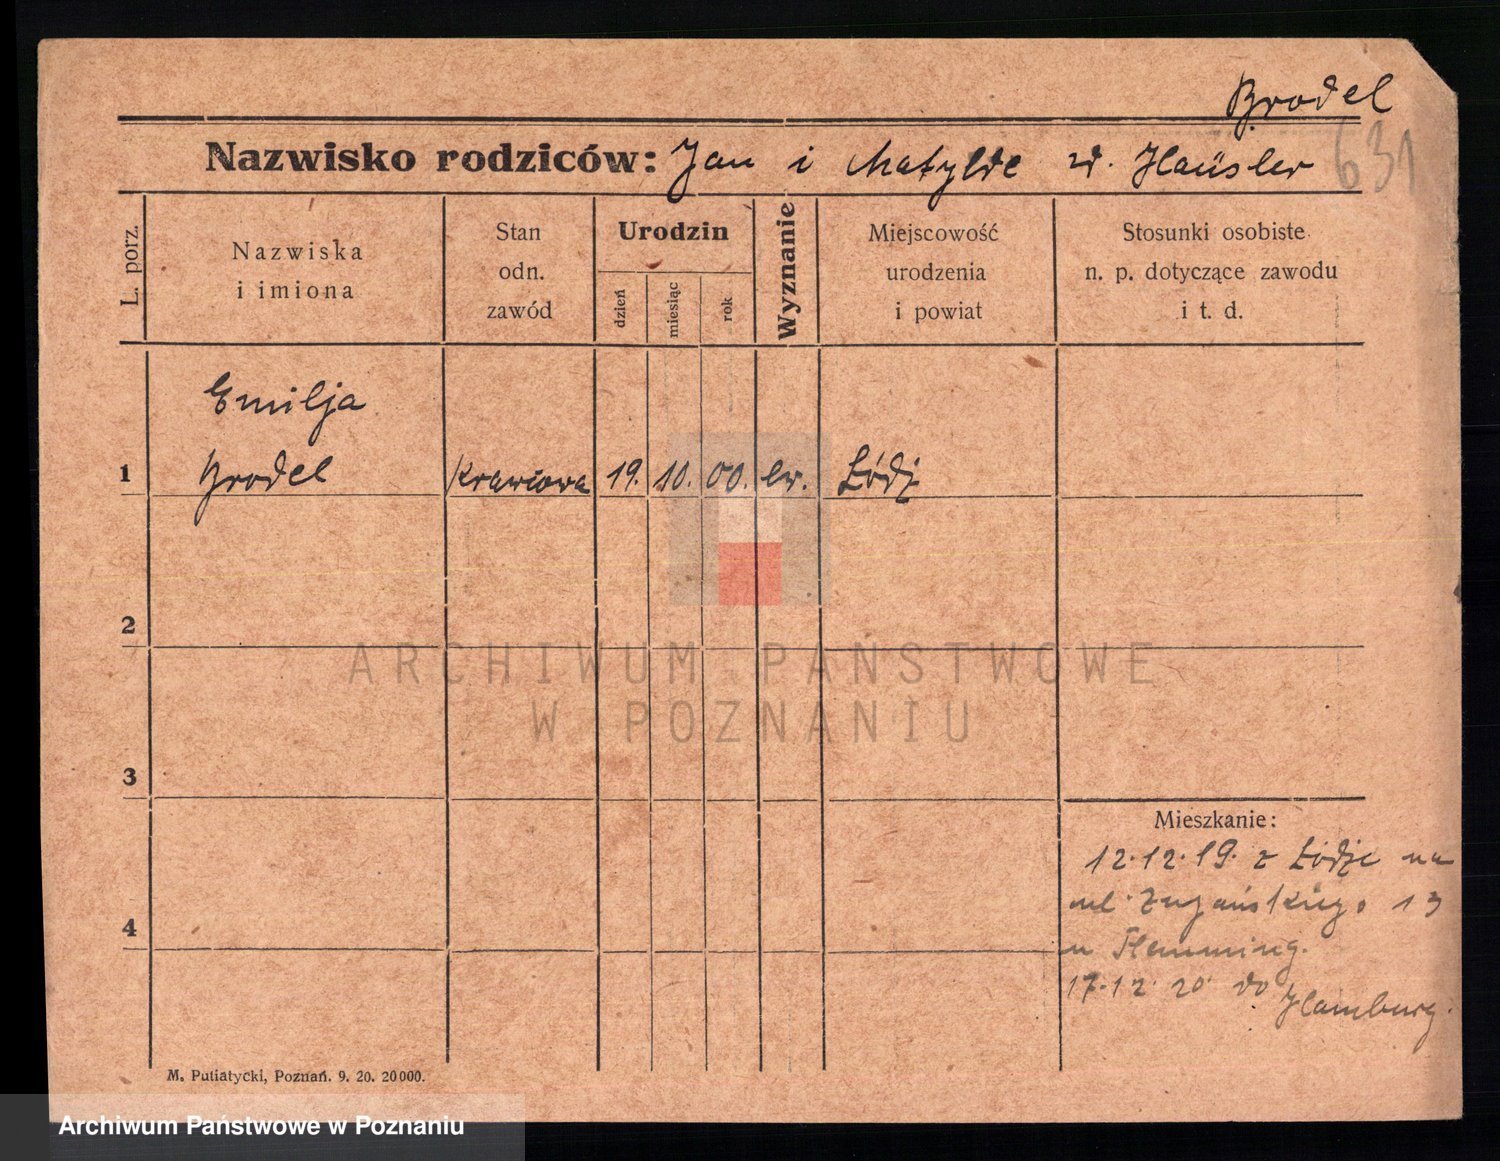 Brodel
Nazwisko rodziców: Jan i Matylde zd. Haüsler
631
L. porz.
Nazwiska
i imiona
Stan
odn.
zawód
Urodzin
dzień
miesiąc
rok
Wyznanie
Miejscowość
urodzenia
i powiat
Stosunki osobiste
n. p. dotyczące zawodu
i t. d.
Emilja
1 Brodel Krawcowa 19. 10. 00. ew. Łódź
2
3
4
Mieszkanie:
12.12.19. z Łodzi na
ul. 13
u Flemming.
17.12.20 do
Hamburg.
M. Putiatycki, Poznań. 9. 20. 20000.
ARCHIWUM PAŃSTWOWE
W POZNANIU
Archiwum Państwowe w Poznaniu